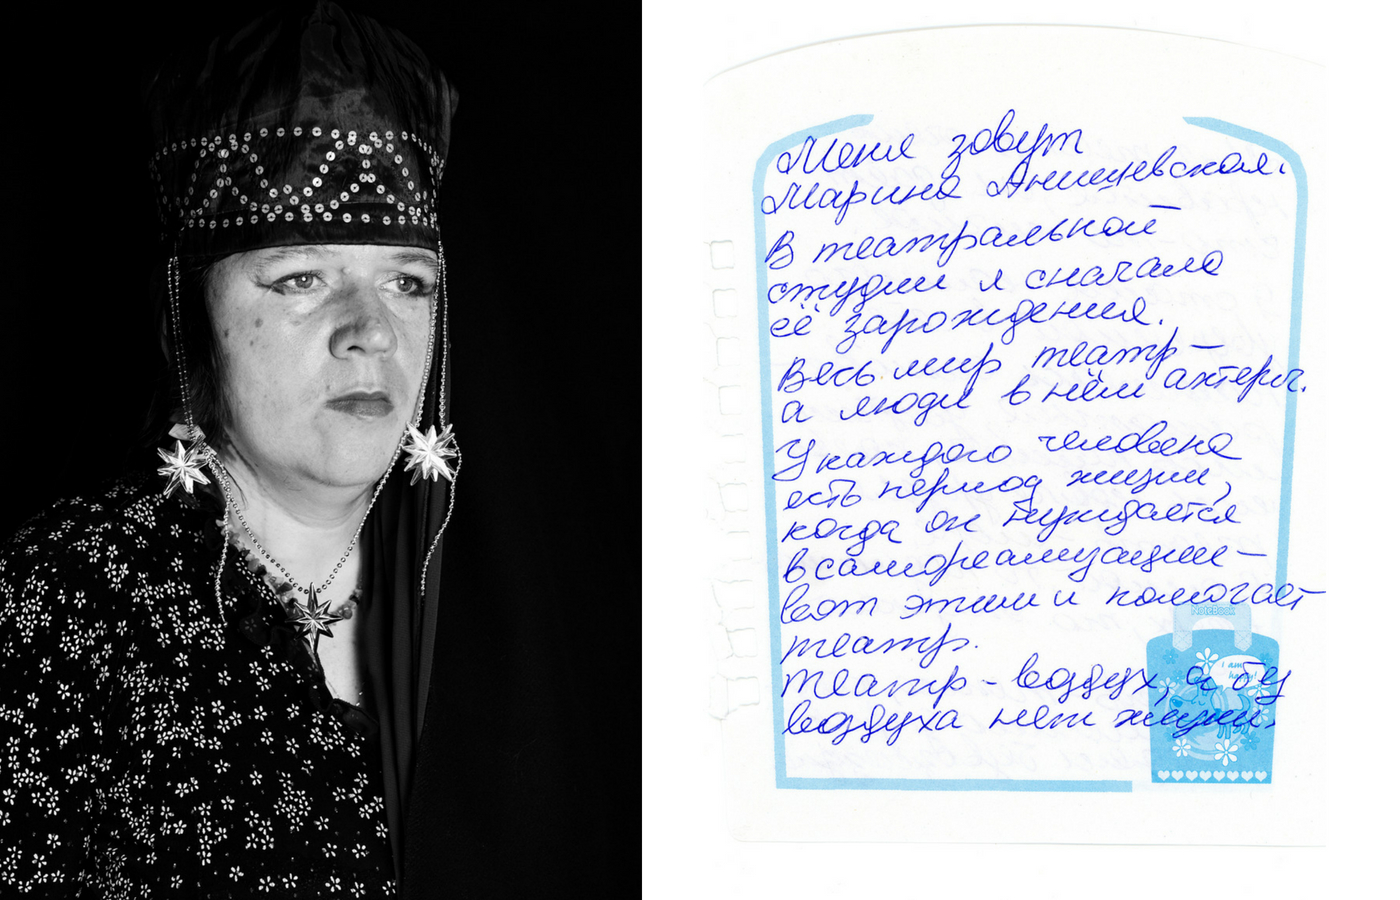 Меня зовут
Марина Анищевская.
В театральной
студии я сначала
её зарождения.
Весь мир театр —
а люди в нём актеры.
У каждого человека
есть период жизни,
когда он нуждается
в самореализации —
вот этим и помогает
театр.
Театр - воздух, а бу
воздуха нет жизни.
NoteBook
i am
happy!